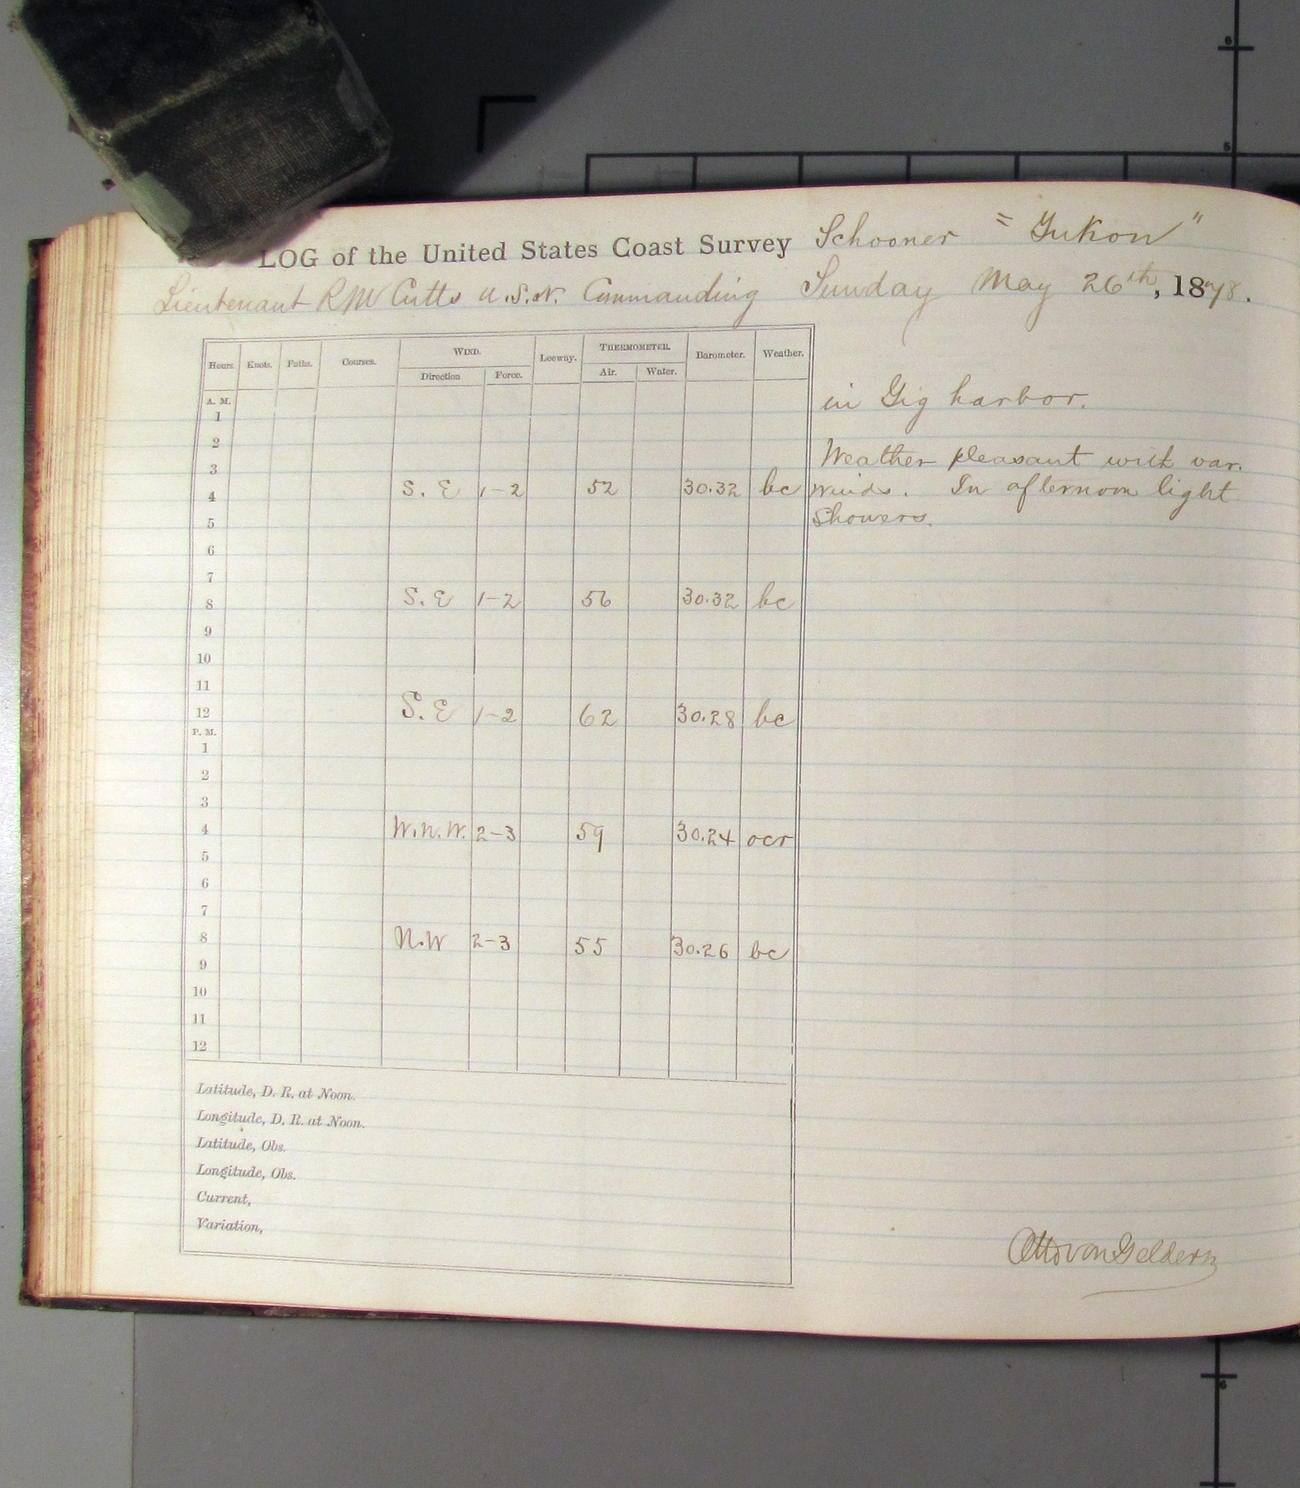 LOG of the United States Coast Survey Schooner "Yukon"
Lieutenant R M Cutts U.S.N. Commanding Sunday May 26th, 1878.
Hours. Knots. Faths. Courses. WIND. Leeway. THERMOMETER. Barometer. Weather.
Direction Force. Air. Water.
A. M.
1
in Gig harbor.
2
3
Weather pleasant with var.
4 S. E 1-2 52 30.32 bc
winds. In afternoon light
5
showers.
6
7
8 S. E 1-2 56 30.32 bc
9
10
11
12 S. E 1-2 62 30.28 bc
P. M.
1
2
3
4 W.N.W. 2-3 59 30.24 ocr
5
6
7
8 N.W 2-3 55 30.26 bc
9
10
11
12
Latitude, D. R. at Noon.
Longitude, D. R. at Noon.
Latitude, Obs.
Longitude, Obs.
Current,
Variation,
Otto von Geldern
6
5
6